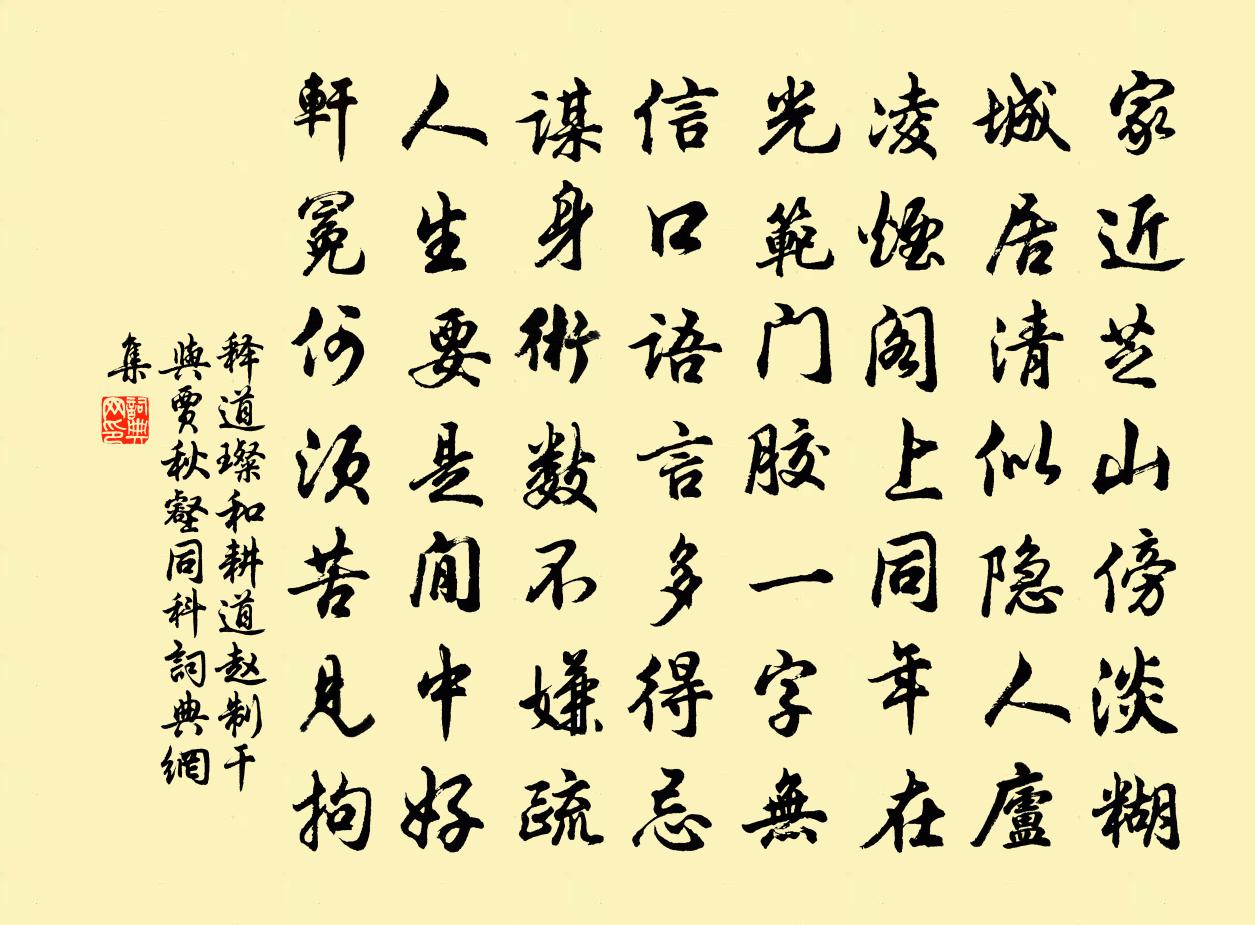 家近芝山傍淡糊
城居清似隐人廬
凌煙阁上同年在
光範门胶一字無
信口語言多得忌
謀身術数不嫌疏
人生要是閒中好
軒冕何须苦見拘
释道璨和耕道赵制干
與賈秋壑同科詞典網
集
詞典网印